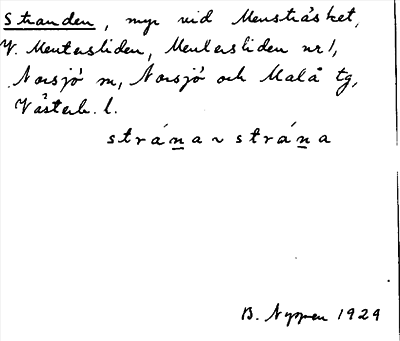 Stranden, myr vid Mensträsket,
V. Menlersliden, Menlersliden nr 1,
Norsjö sn, Norsjö och Malå tg,
Västerb. l.
strána ~ strána
B. Nyman 1929